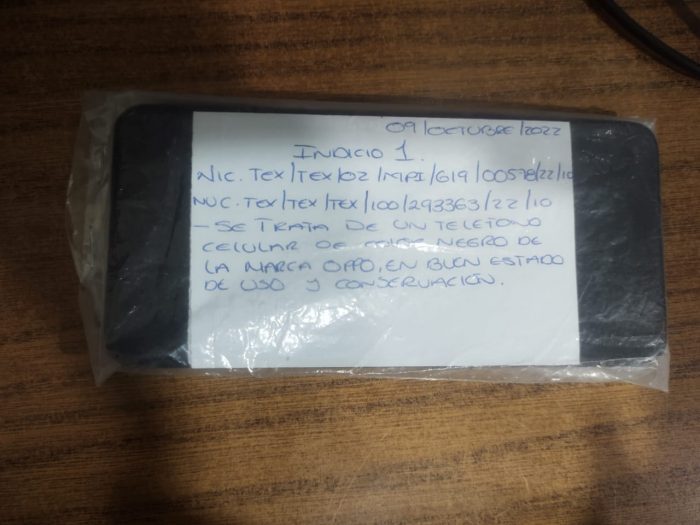 09/OCTUBRE/2022
INDICIO 1.
NIC. TEX/TEX/02/MPI/619/00598/22/10
NUC. TEX/TEX/TEX/100/293363/22/10
- SE TRATA DE UN TELEFONO
CELULAR DE COLOR NEGRO DE
LA MARCA OPPO, EN BUEN ESTADO
DE USO Y CONSERVACIÓN.